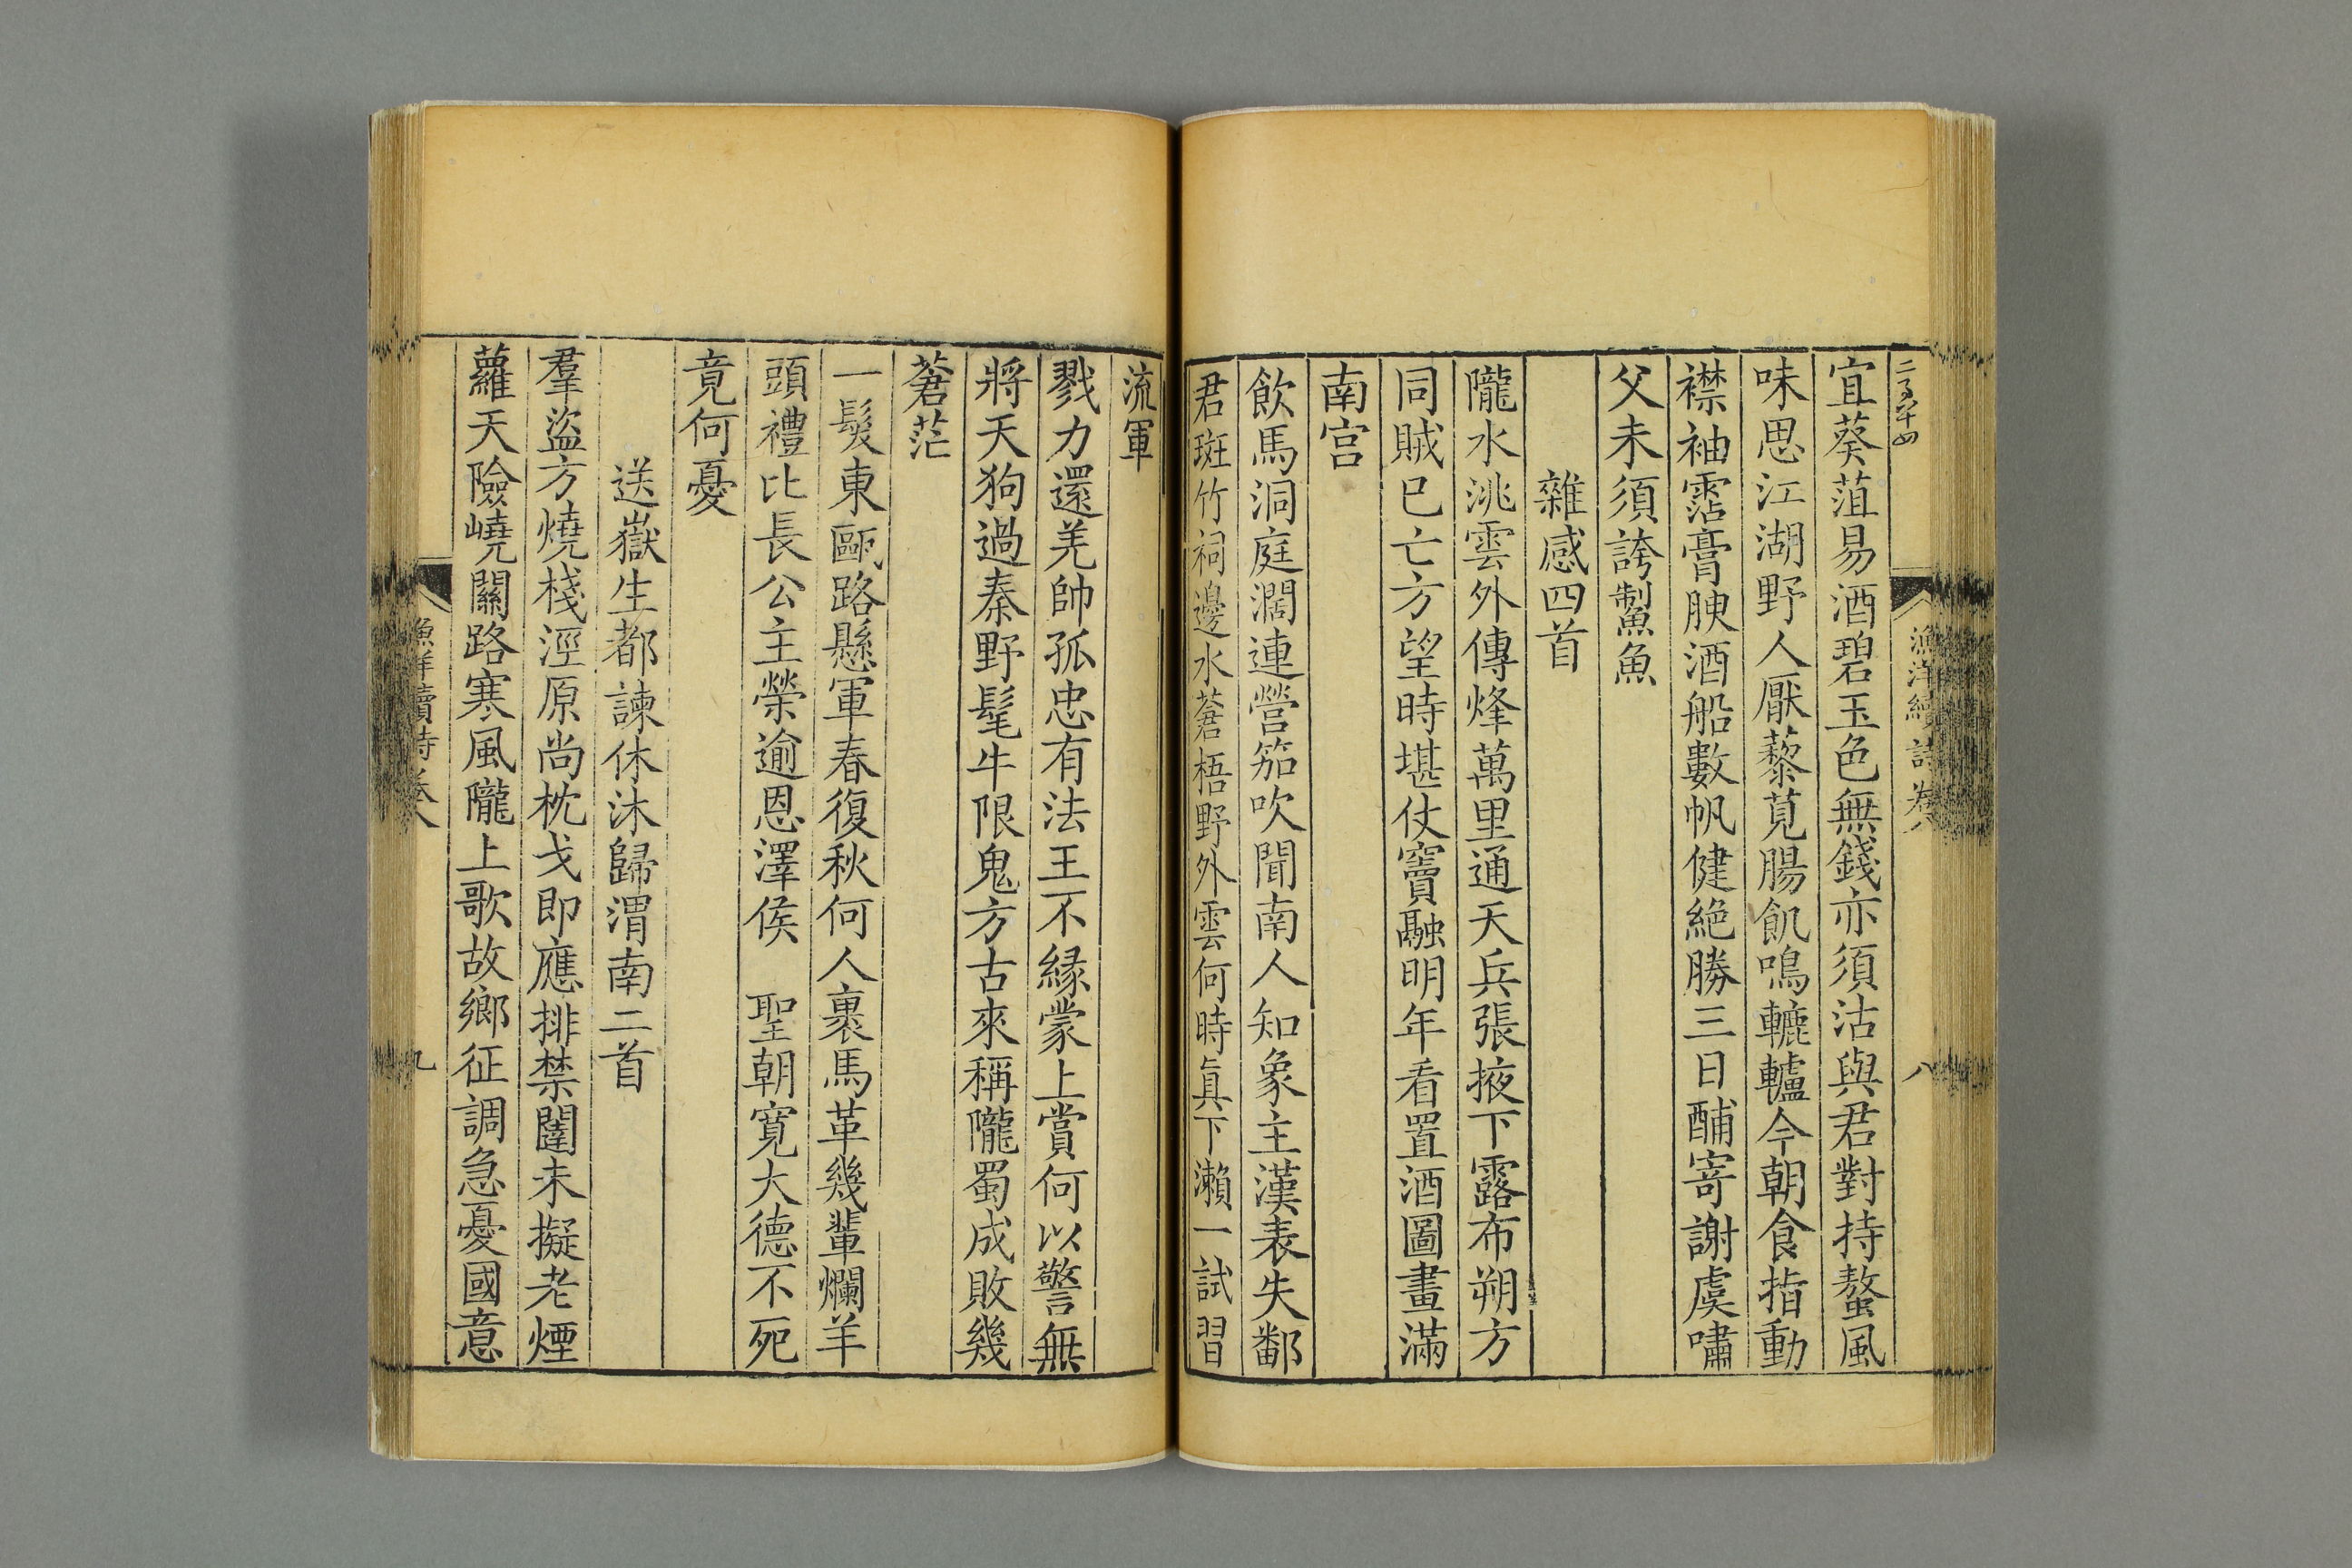 漁洋續詩卷八
八
宜葵菹易酒碧玉色無錢亦須沽與君對持螯風
味思江湖野人厭藜莧腸飢鳴轆轤今朝食指動
襟袖霑膏腴酒船數帆健絕勝三日酺寄謝虞嘯
父未須誇䱥魚
雜感四首
隴水洮雲外傳烽萬里通天兵張掖下露布朔方
同賊巳亡方望時堪仗竇融明年看置酒圖畫滿
南宮
飲馬洞庭濶連營笳吹聞南人知象主漢表失鄱
君斑竹祠邊水蒼梧野外雲何時眞下瀨一試習
流軍
戮力還羌帥孤忠有法王不緣蒙上賞何以警無
將天狗過秦野髦牛限鬼方古來稱隴蜀成敗幾
蒼茫
一髮東甌路懸軍春復秋何人裹馬革幾輩爛羊
頭禮比長公主榮逾恩澤侯 聖朝寬大德不死
竟何憂
送嶽生都諫休沐歸渭南二首
羣盜方燒棧涇原尚枕戈即應排禁闥未擬老煙
蘿天險嶢關路寒風隴上歌故鄉征調急憂國意
漁洋續詩卷八
九